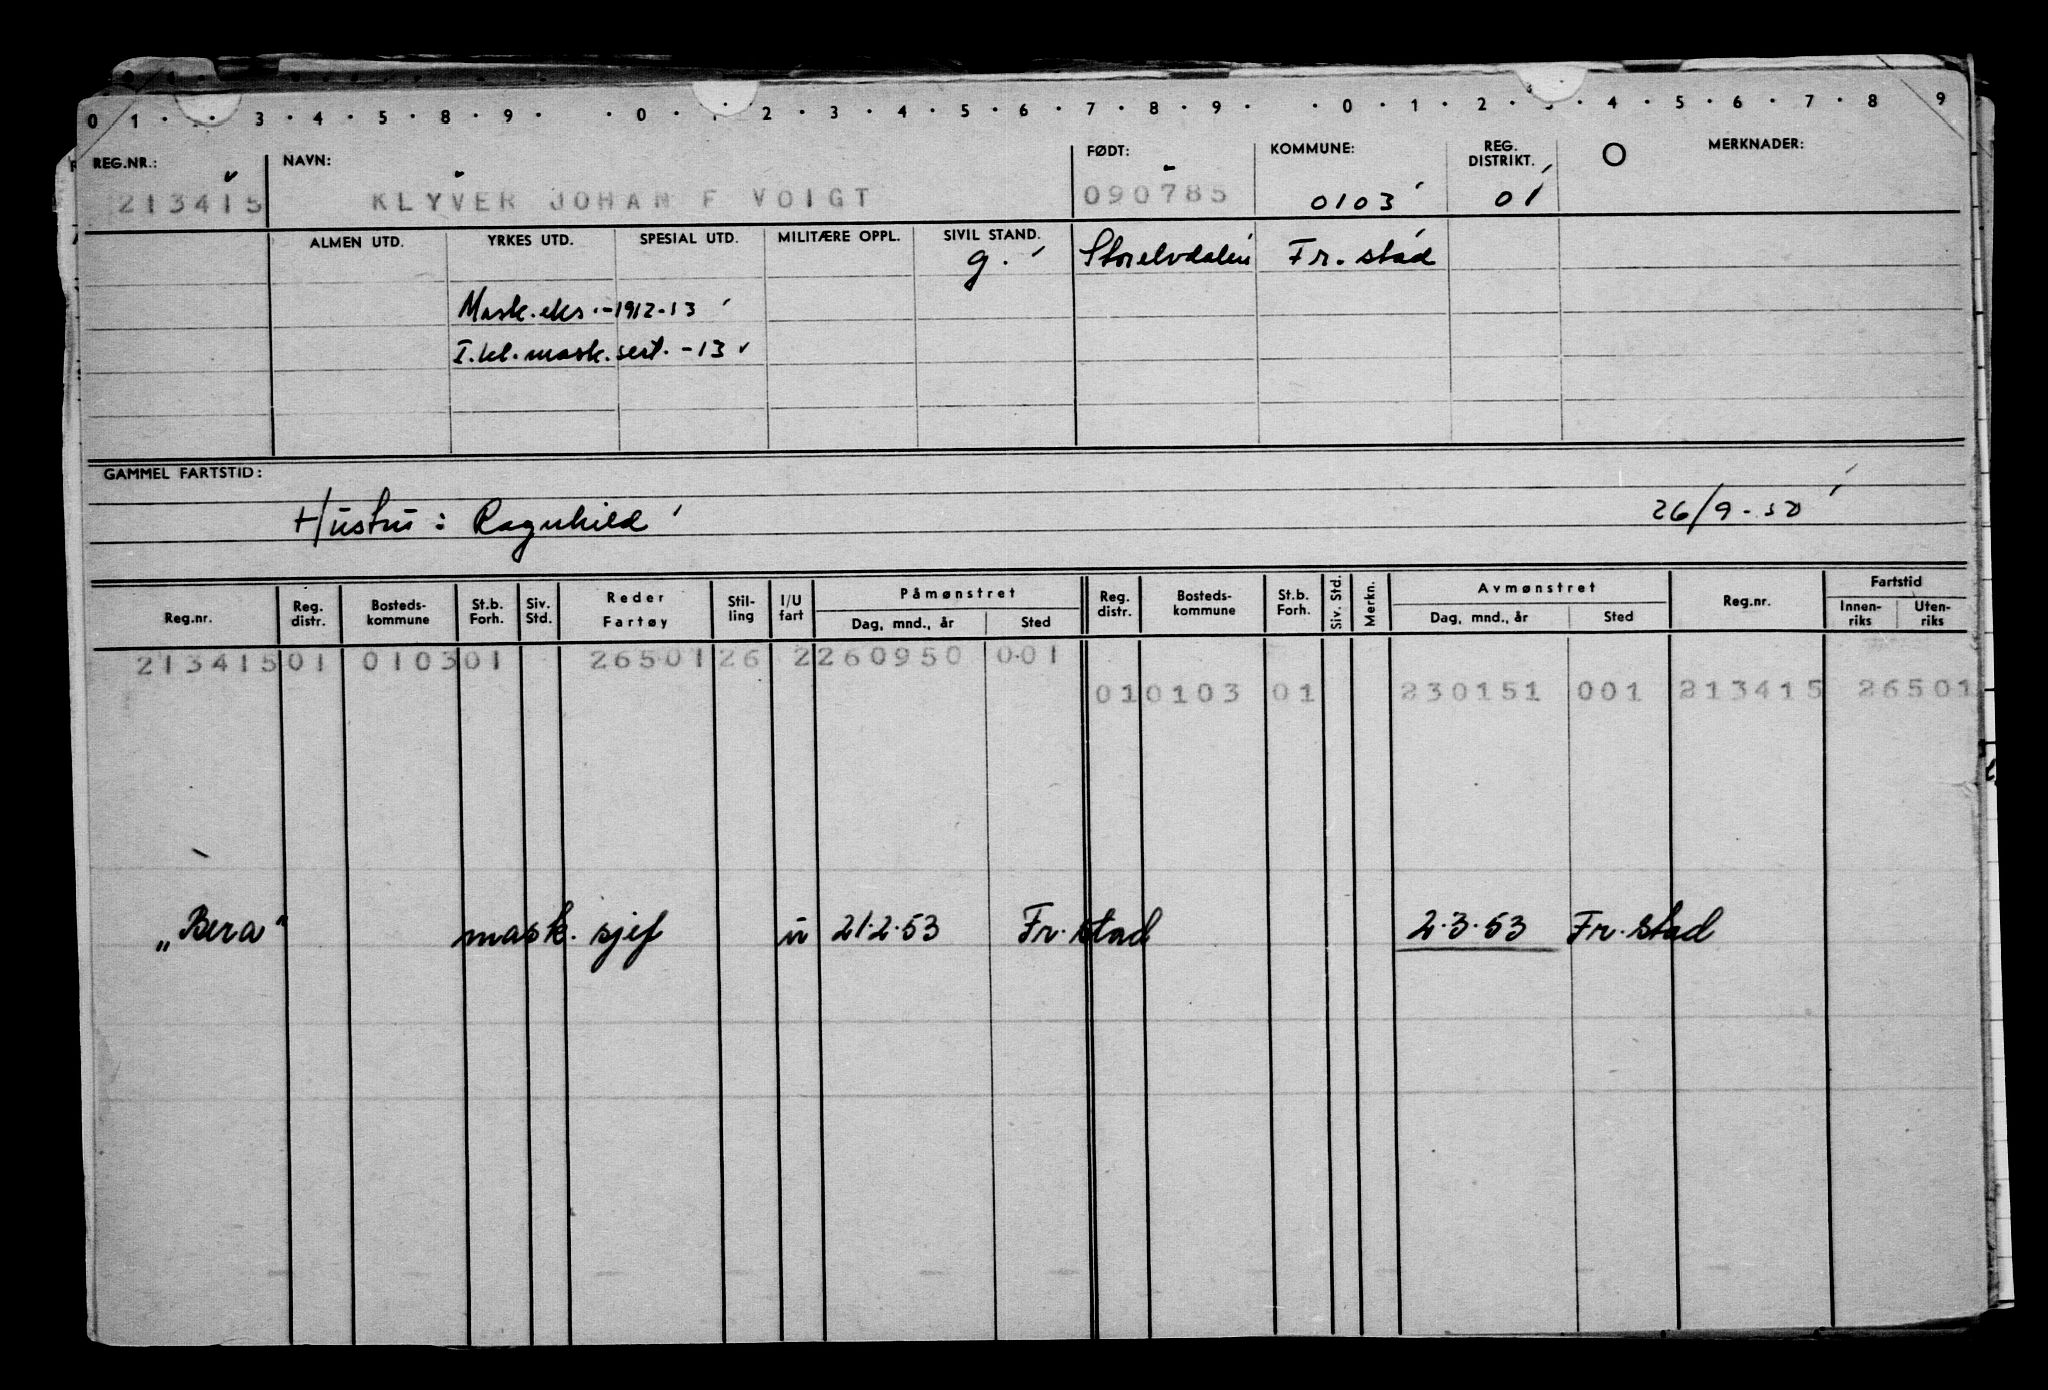 0 1 · · 3 · 4 · 5 · 8 · 9 · · 0 · · 2 · 3 · 4 · 5 · 6 · 7 · 8 · 9 · · 0 · 1 · 2 · 3 · 4 · 5 · 6 · 7 · 8 9
REG.NR.: NAVN: FØDT: KOMMUNE: REG. DISTRIKT. O MERKNADER:
213415 KLYVER JOHAN F VOIGT 090785 0103 01
ALMEN UTD. YRKES UTD. SPESIAL UTD. MILITÆRE OPPL. SIVIL STAND. Storelvdalen Fr.stad
g.
Mask.eks.-1912-13
I.kl.mask.sert.-13
GAMMEL FARTSTID:
Hustru: Ragnhild 26/9-50
Reg.nr. Reg. distr. Bosteds-kommune St.b. Forh. Siv. Std. Reder Fartøy Stil-ling I/U fart Påmønstret Dag, mnd., år Sted Reg. distr. Bosteds-kommune St.b. Forh. Siv. Std. Merkn. Avmønstret Dag, mnd., år Sted Reg.nr. Fartstid Innen-riks Uten-riks
213415 01 0103 01 26501 26 2 260950 001
01 0103 01 230151 001 213415 26501
„Bera" mask. sjef u 21.2.53 Fr.stad 2.3.53 Fr.stad